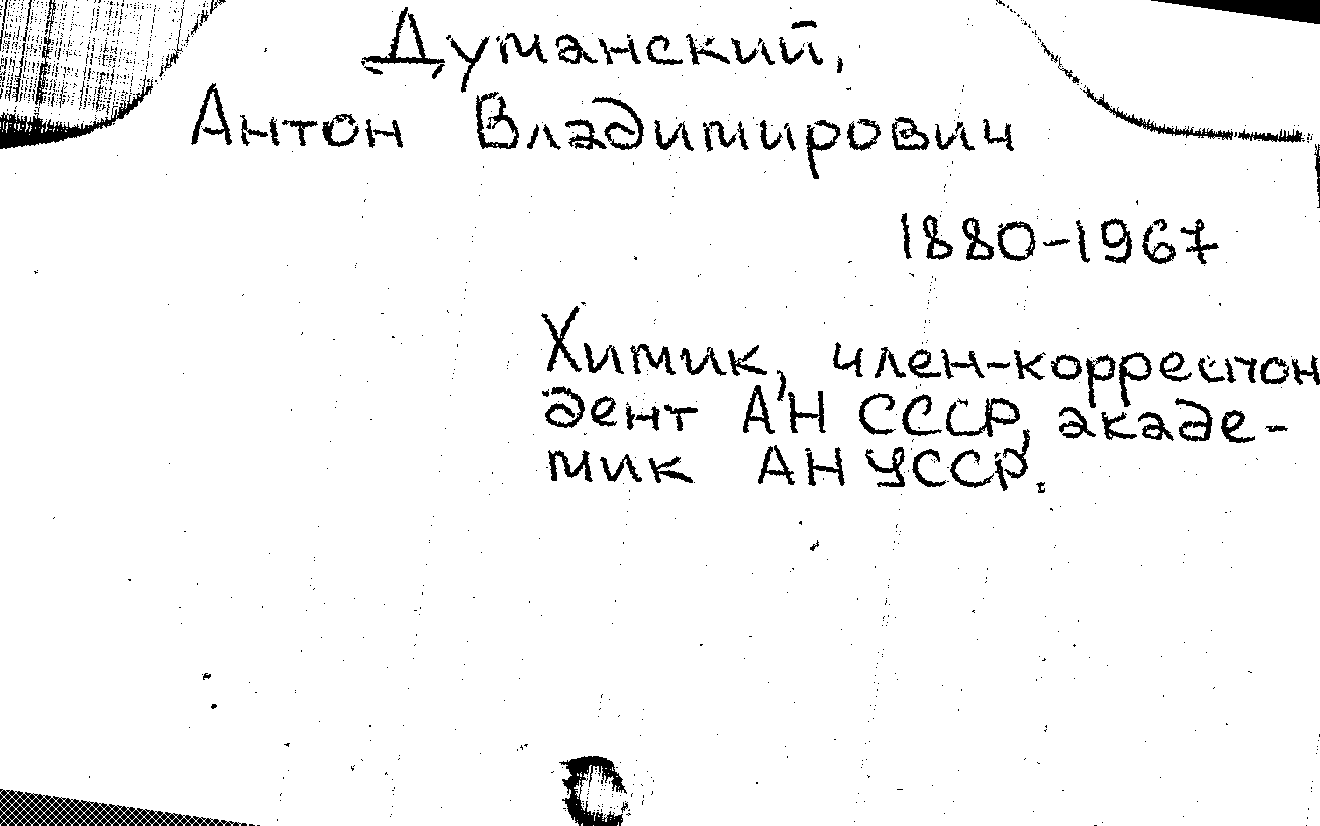 Думанский,
Антон Владимирович
1880-1967
Химик, член-корреспон
дент АН СССР, акаде-
мик АН УССР.